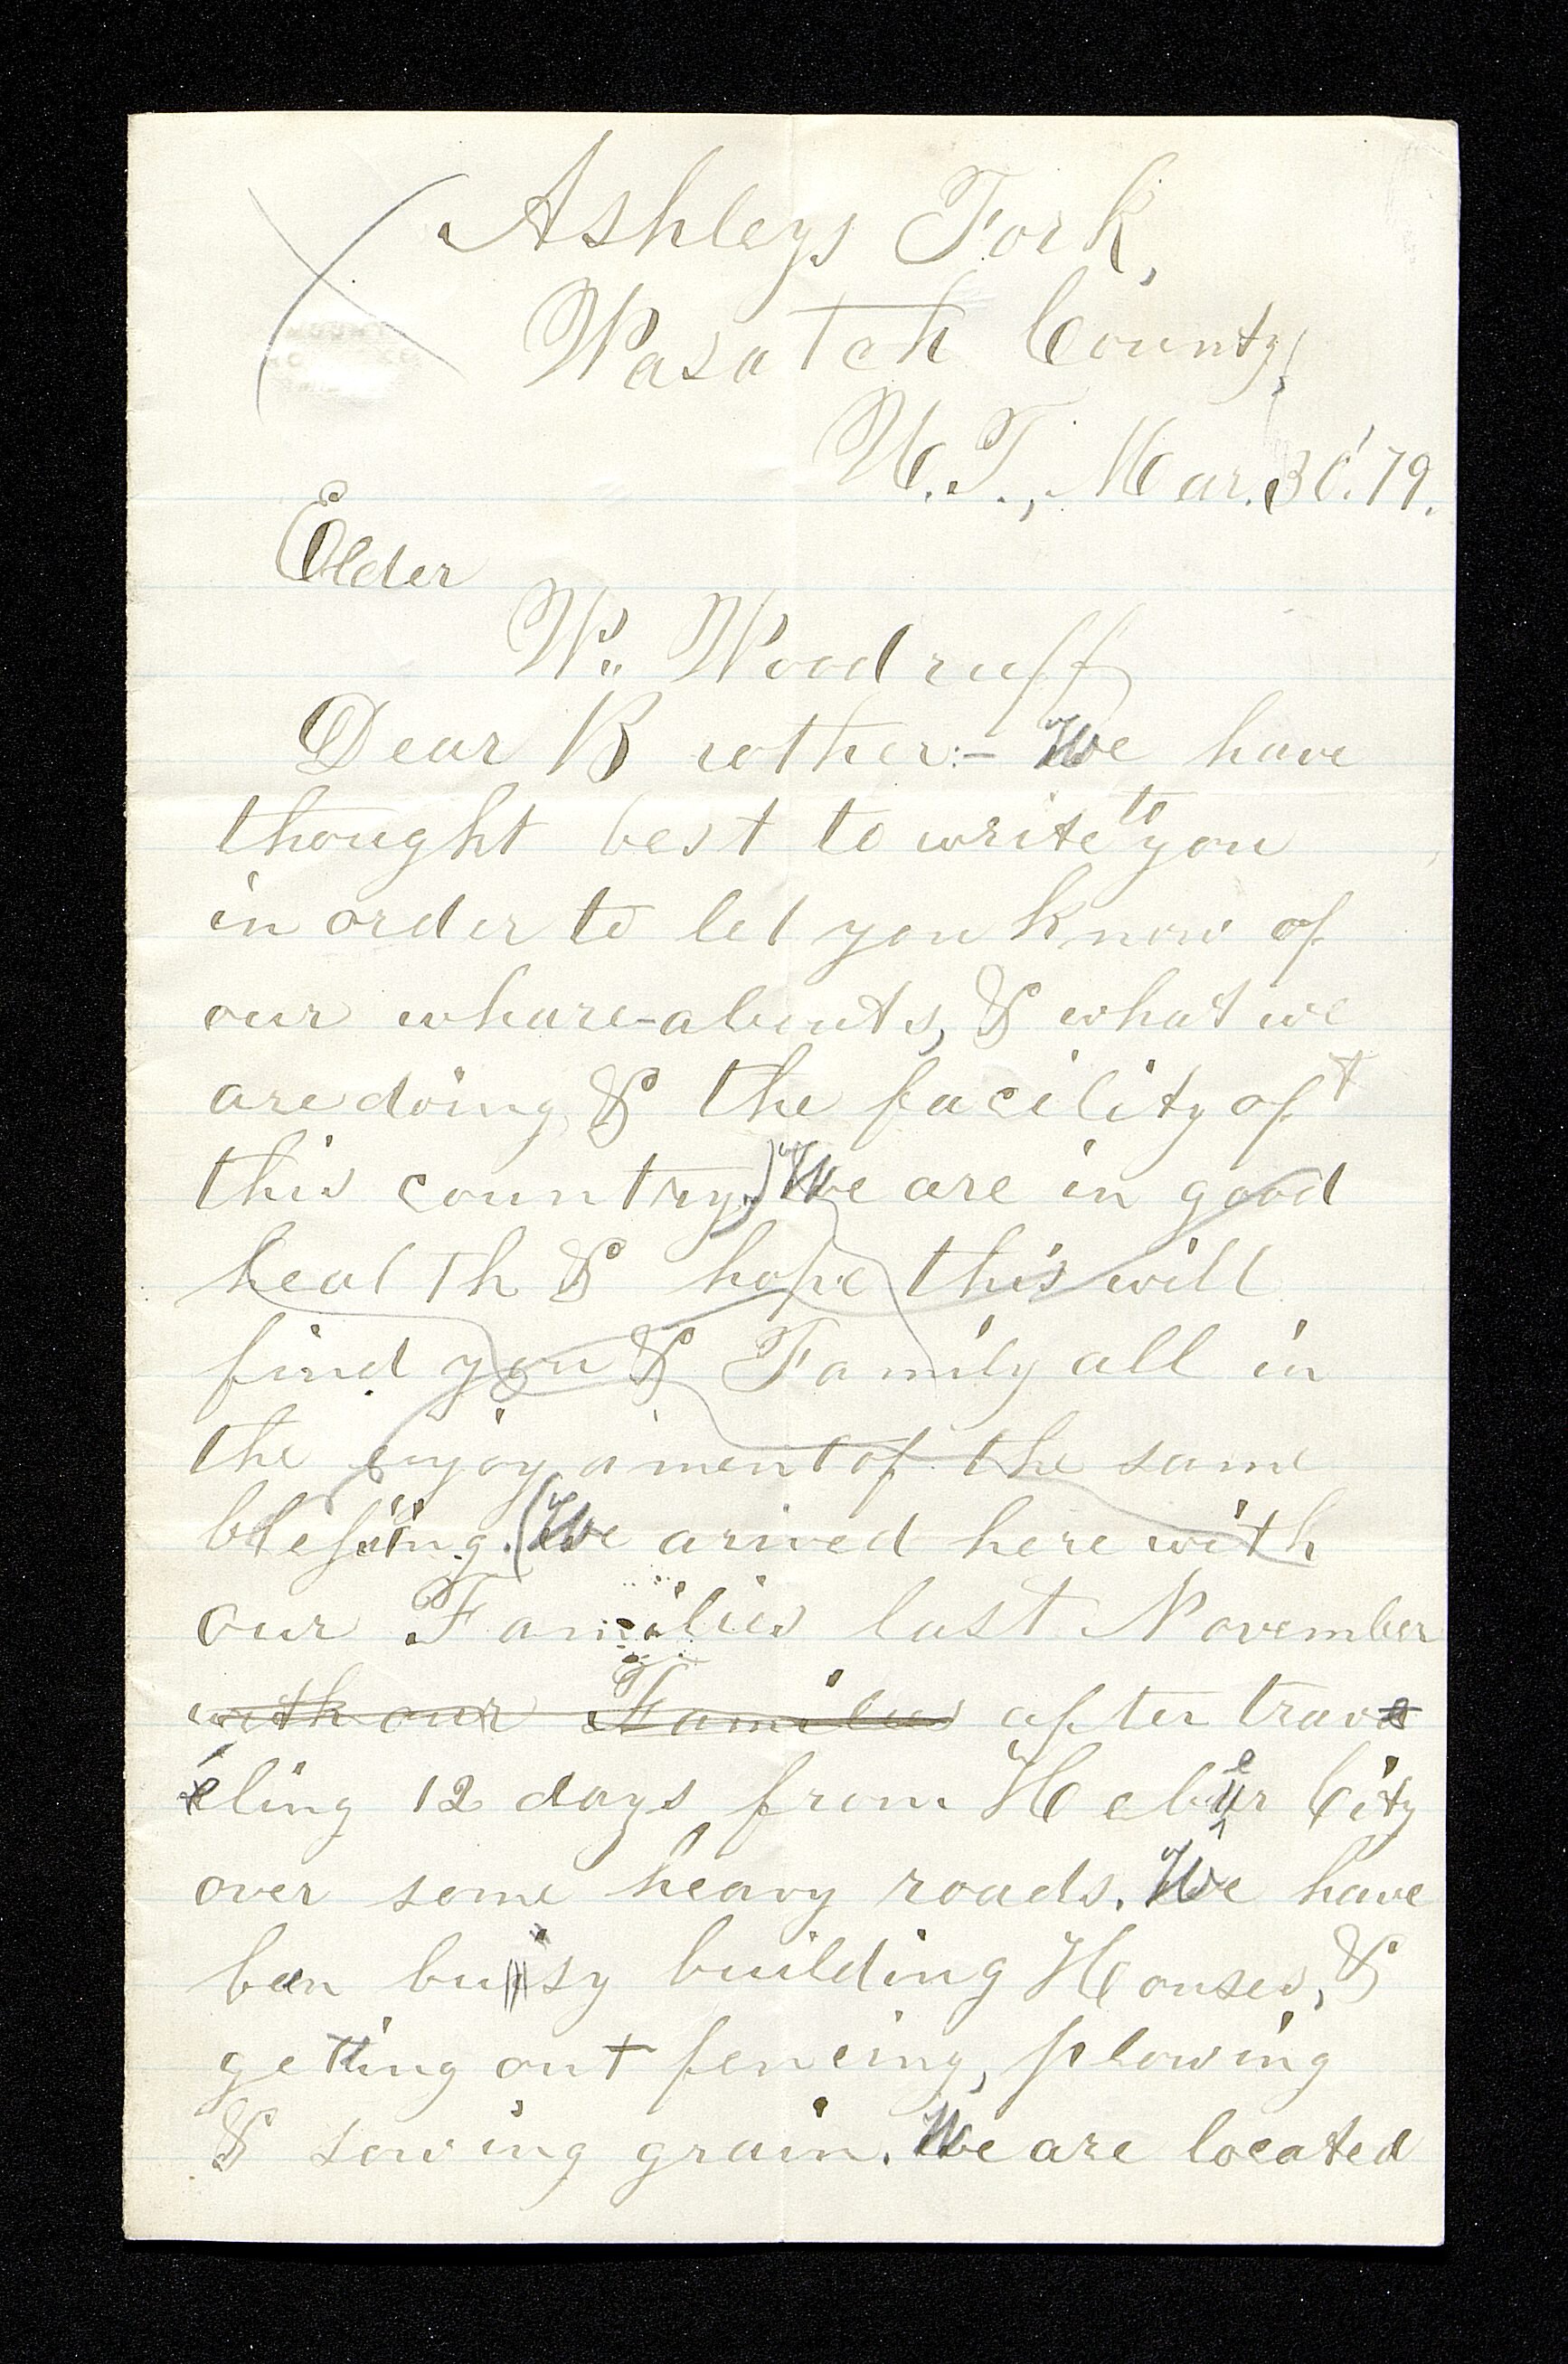 Ashleys Fork,
Wasatch County,
U.T., Mar. 30'. 79.
Elder
W. Woodruff
Dear Brother:- We have
thought best to write to you
in order to let you know of
our whare-abouts, & what we
are doing & the facility of
this country. We are in good
health & hope this will
find you & Family all in
the enjoyament of the same
blessing. (We arived here with
our Families last November
with our Families after trave
eling 12 days from Heber City
over some heavy roads. We have
ben buisy building Houses, &
getting out fencing, plowing
& sowing grain. We are located